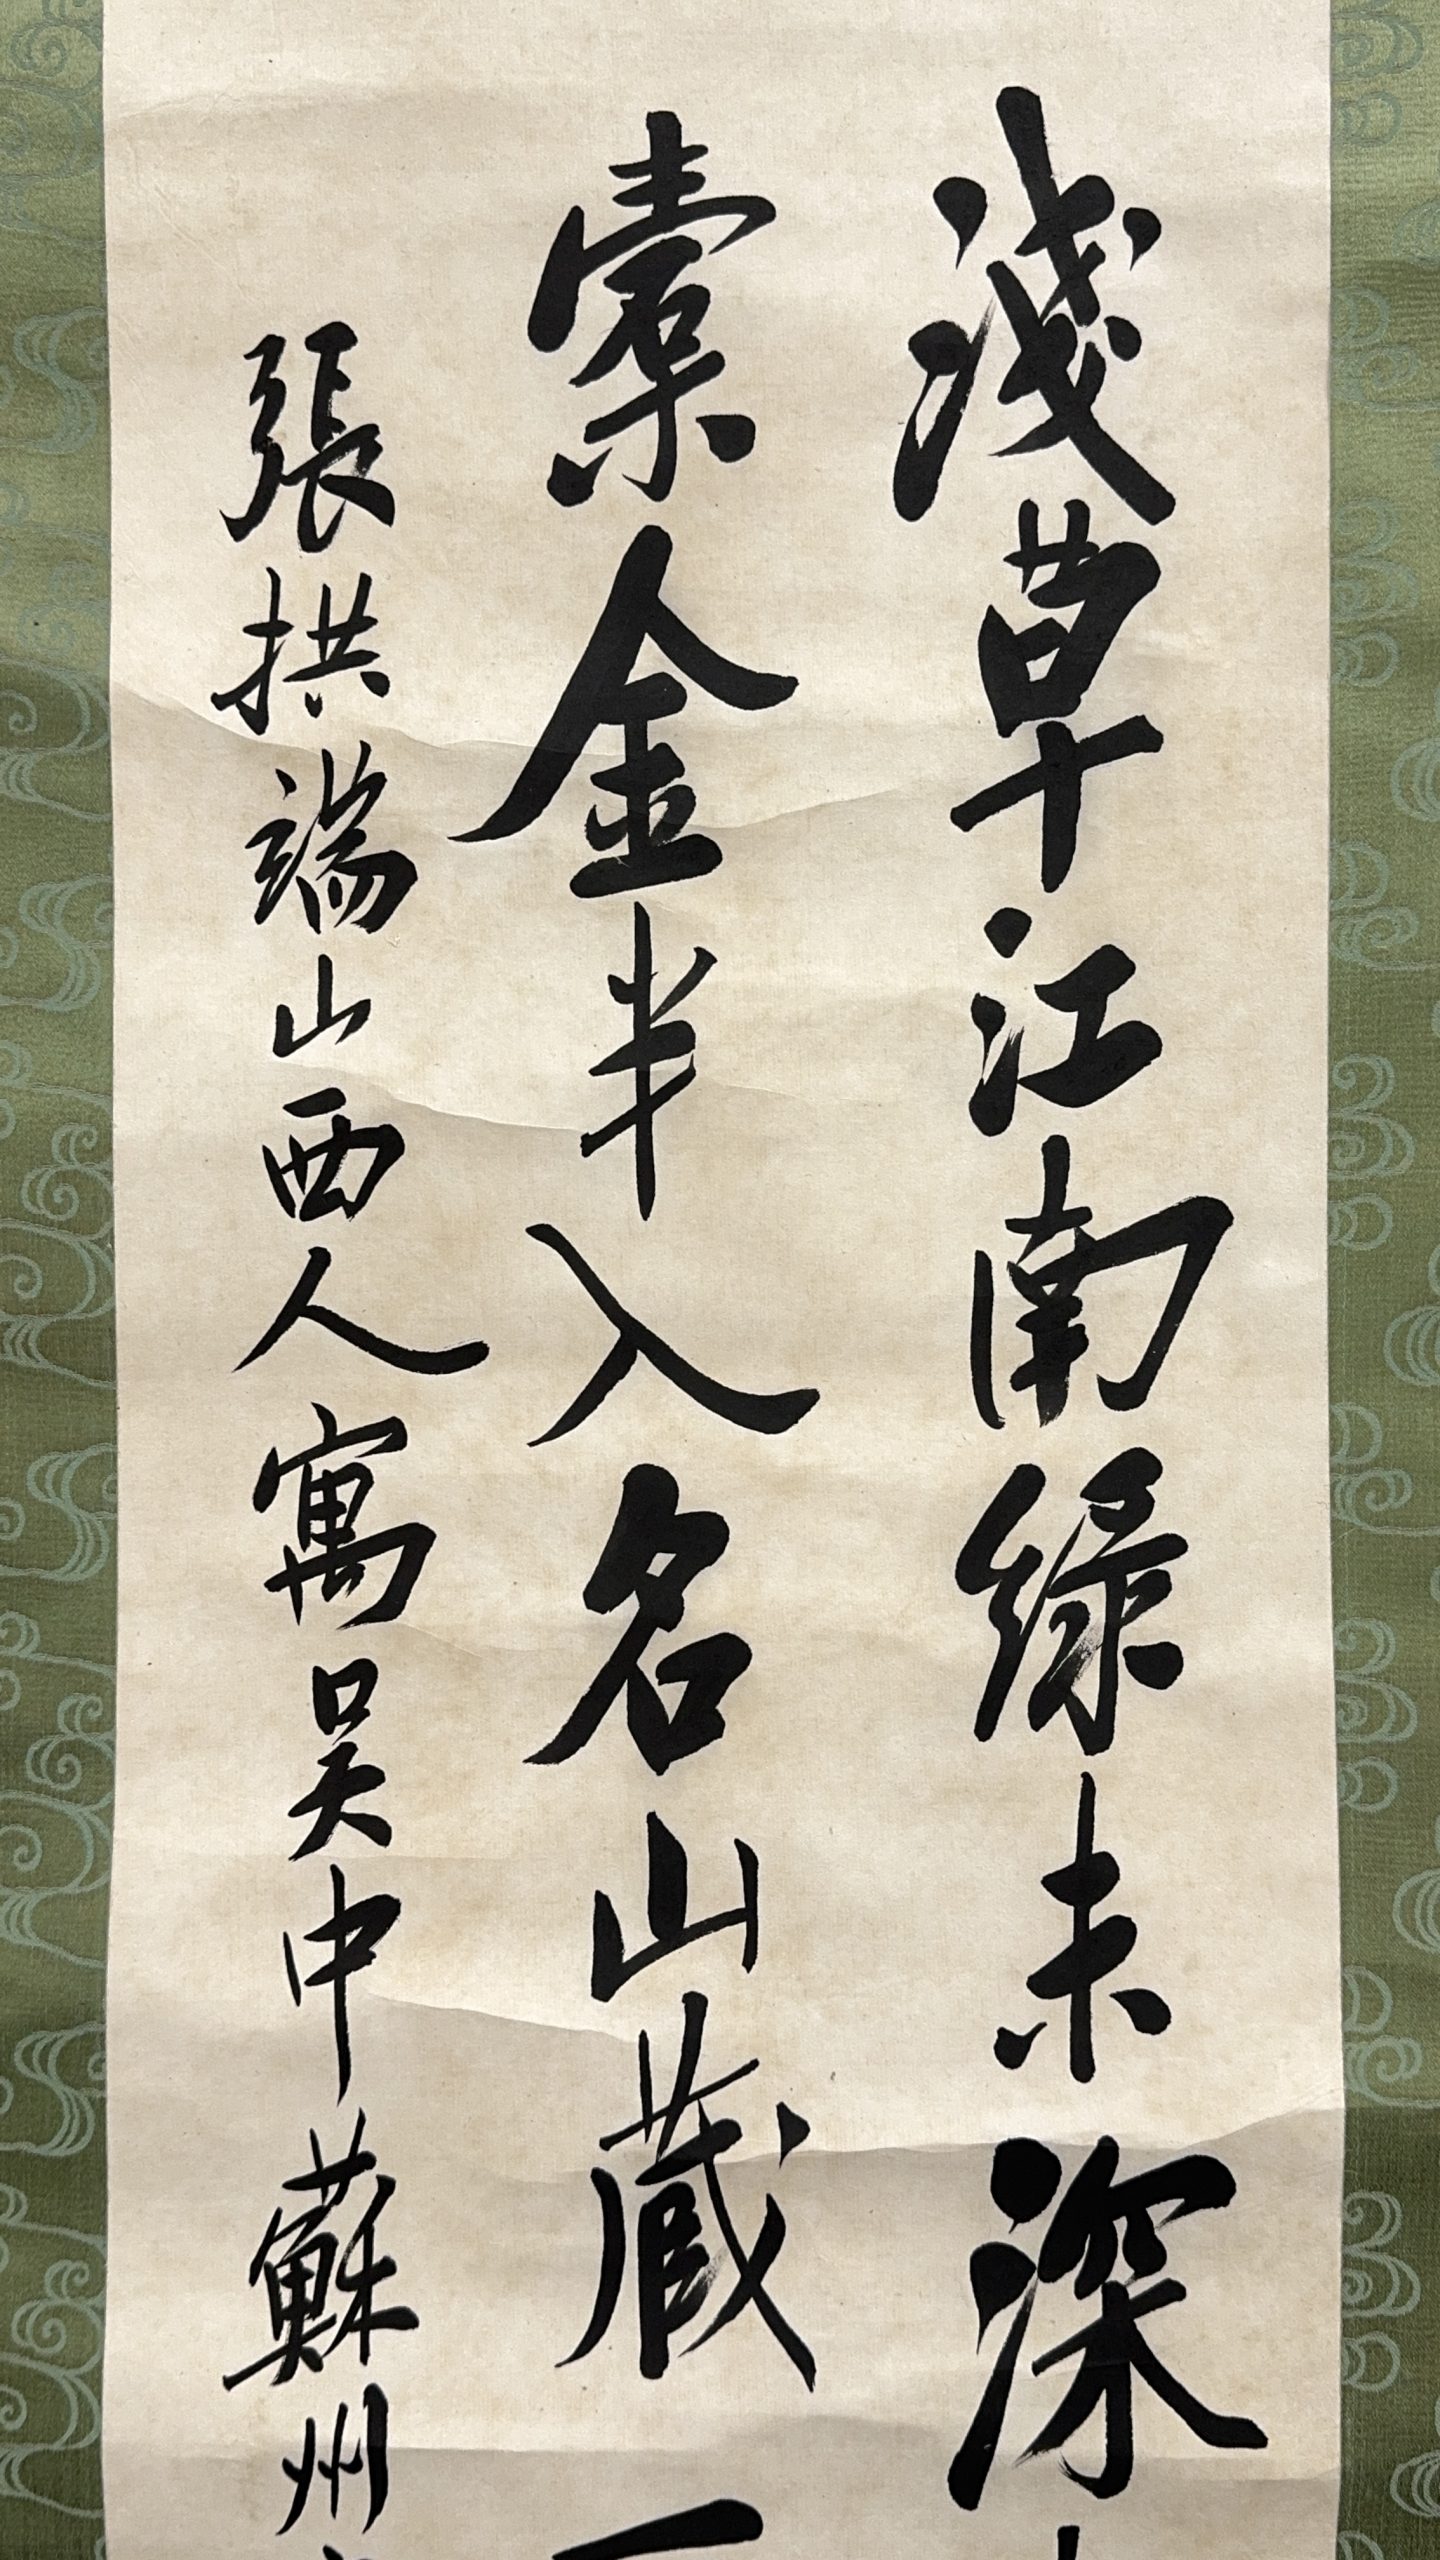 淺草江南綠未深
橐金半入名山藏
張拱端山西人寓吳中蘇州